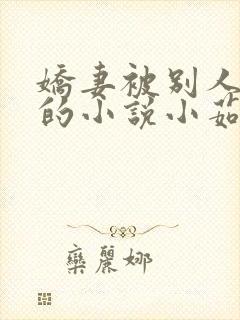 嬌妻被别人
的小說小茹
欒麗娜